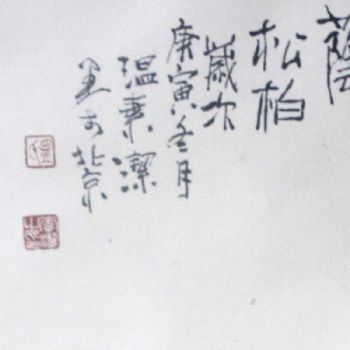 蔭
松柏
歲次
庚寅冬月
温秉潔
畫於北京